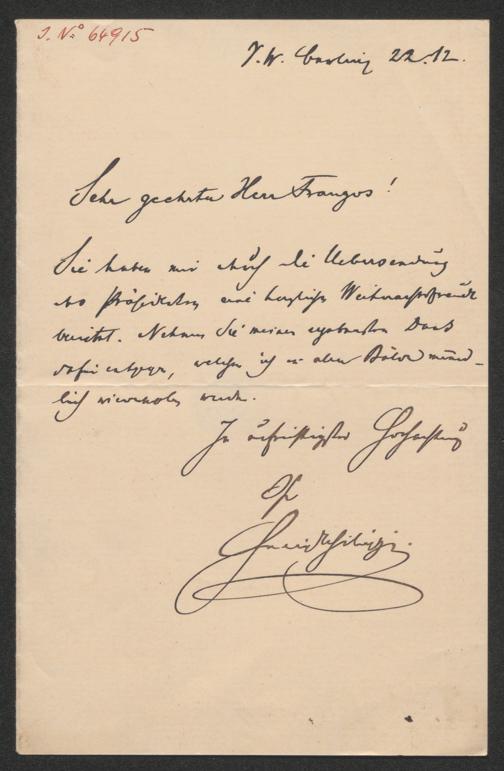 J. Nº 64915
22.12.
Sehr geehrter Herr Franzos!
Sie haben mir durch die Uebersendung
des Präsidenten eine herzliche Weihnachtsfreude
bereitet. Nehmen Sie meinen ergebensten Dank
dafür entgegen, welchen ich in aller Bälde münd-
lich wiederholen werde.
In aufrichtigster Hochachtung